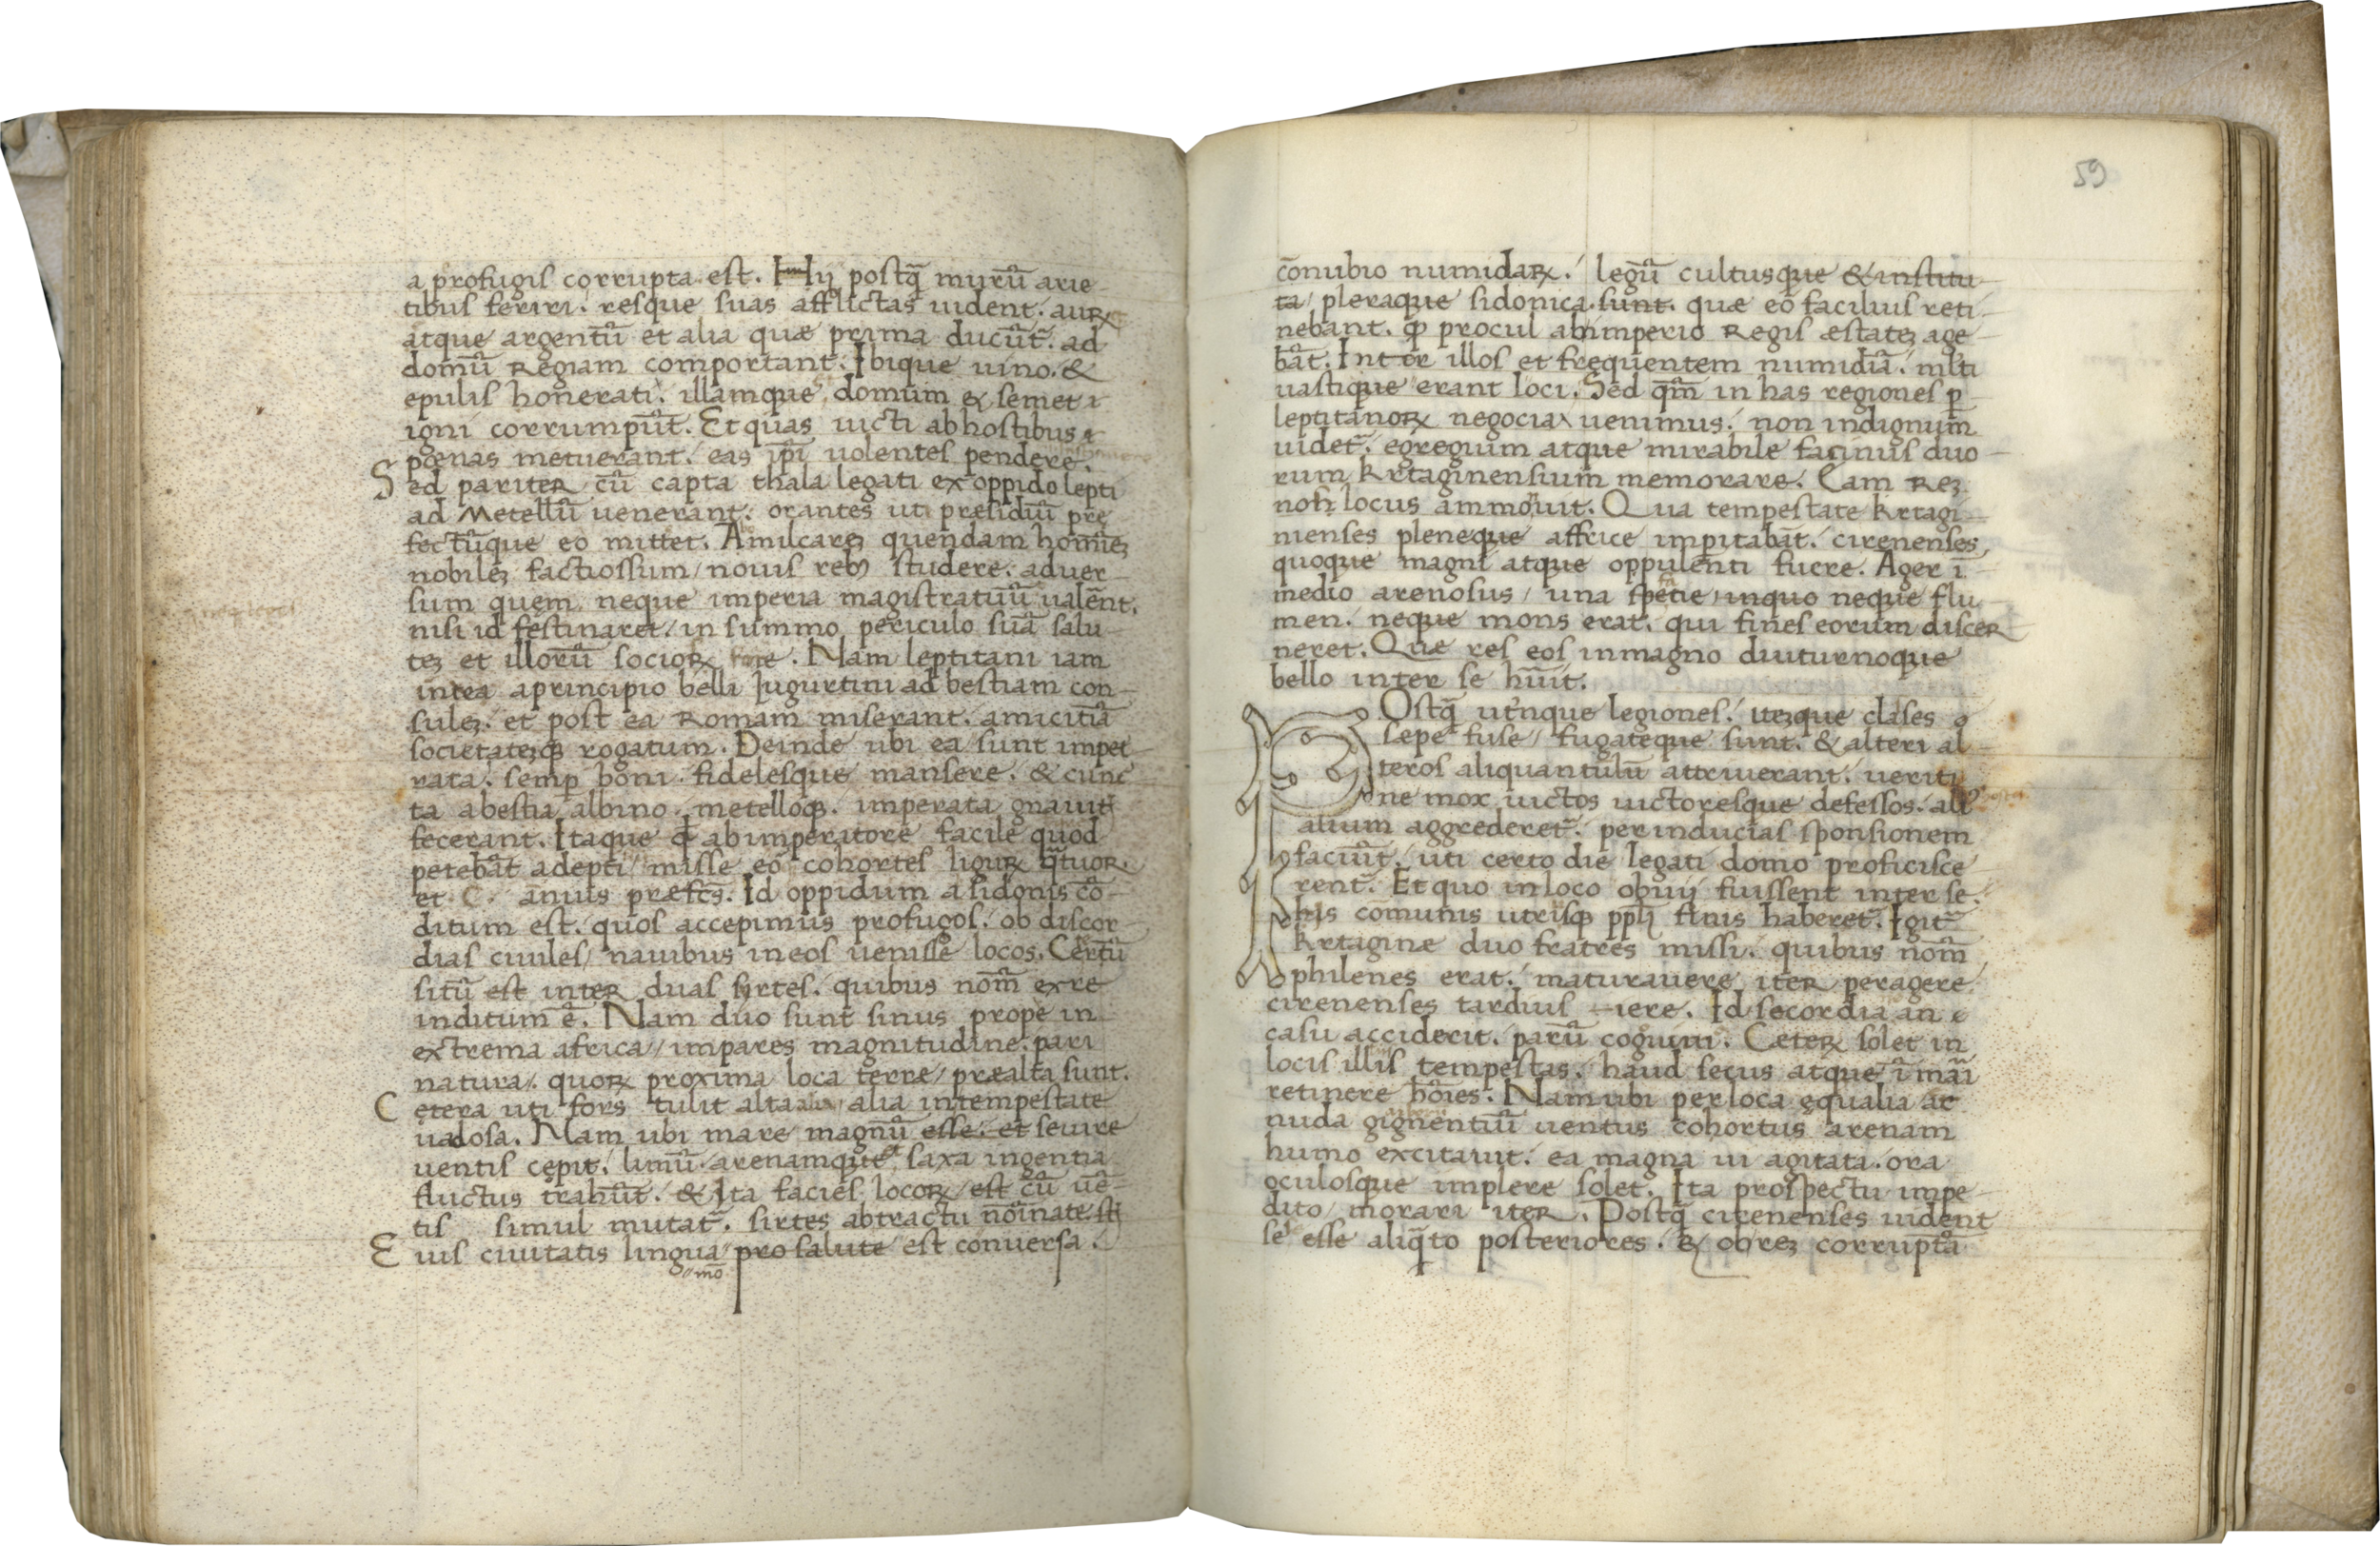 a profugis corrupta est. Hij postq̃ murũ arie
tibus feriri. resque suas afflictas uident. auꝝ
atque argentũ et alia quæ prima ducũt̃. ad
domũ Regiam comportant. Ibique uino. &
epulis honerati. illamque domum & semet
igni corrumpũt. Et quas uicti ab hostibus
pœnas metuerant. eas ip̃i uolentes pendere.
Sed pariter cũ capta thala legati ex oppido lepti
ad Metellũ uenerant. orantes uti presidiũ pre
fectũque eo mittet. Amilcareꝫ quendam homĩeꝫ
nobileꝫ factiossum / nouis rebꝰ studere. aduer
sum quem neque imperia magistratuũ ualẽnt.
nisi id festinaret / in summo periculo suã salu
teꝫ et illorũ socioꝝ fore. Nam leptitani iam
intea a principio belli Jugurtini ad bestiam con
suleꝫ. et post ea Romam miserant. amicitiã
societateꝫqꝫ rogatum. Deinde ubi ea sunt impet
rata. semꝑ boni fidelesque mansere. & cunc
ta a bestia albino. metelloqꝫ. imperata gnauit̃
fecerant. Itaque ab imperatore facile quod
petebãt adepti / misse eo cohortes liguꝝ q̃tuor.
et C. anius præfcs̃. Id oppidum a sidonis cõ
ditum est. quos accepimus profugos. ob discor
dias ciuiles / nauibus in eos uenisse locos. Certũ
sitũ est inter duas sirtes. quibus nom̃ ex re
inditum ẽ. Nam duo sunt sinus prope in
extrema africa / impares magnitudine. pari
natura. quoꝝ proxima loca terræ / præalta sunt.
Cetera uti fors tulit alta alia in tempestate
uadosa. Nam ubi mare magnũ esse. et seuire
uentis cepit. limũ arenamque & saxa ingentia
fluctus trahũt. & Ita facies locoꝝ est cũ uẽ
tis simul mutat̃. sirtes ab tractu nõinate st̃
Eius ciuitatis lingua pro salute est conuersa.
mõ
59
cõnubio numidaꝝ. legũ cultusque & institu
ta / pleraque sidonica sunt. quæ eo facilius reti
nebant. ꝙ procul ab imperio Regis æstateꝫ age
bãt. Inter illos et frequentem numidiã. ml̃ti
uastique erant loci. Sed qm̃ in has regiones ꝑ
leptitanoꝝ negocia uenimus. non indignum
uidet̃. egregium atque mirabile facinus duo
rum krtaginensium memorare. Eam Reꝫ
locus ammonuit. Qua tempestate krtagi
nienses pleneque affrice imꝑitabãt. cirenenses
quoque magni atque oppulenti fuere. Ager ĩ
medio arenosus / una spetie / in quo neque flu
men. neque mons erat. qui fines eorum discer
neret. Quæ res eos in magno diuturnoque
bello inter se hũit.
POstq̃ utrinque legiones. iteꝫque clases
sæpe fuse / fugateque sunt. & alteri al
teros aliquantulũ attriuerant. ueriti
ne mox uictos uictoresque defessos. aliꝰ
alium aggrederet̃. per inducias sponsionem
faciũt. uti certo die legati domo proficisce
rent̃. Et quo in loco obuij fuissent inter se.
his comunis utrisqꝫ ppl̃i finis haberet̃. Igit̃
krtaginæ duo fratres missi. quibus nom̃
philenes erat. maturauere iter peragere.
cirenenses tardius iere. Id secordia an
casu acciderit. parũ cognoui. Ceteꝝ solet in
locis illis tempestas. haud secus atque ĩ mãi
retinere hõies. Nam ubi per loca equalia ac
nuda gignentiũ uentus cohortus arenam
humo excitauit. ea magna ui agitata. ora
oculosque implere solet. Ita prospectu impe
dito / morari iter. Postq̃ cirenenses uident
se esse aliq̃to posteriores. & ob reꝫ corruptã